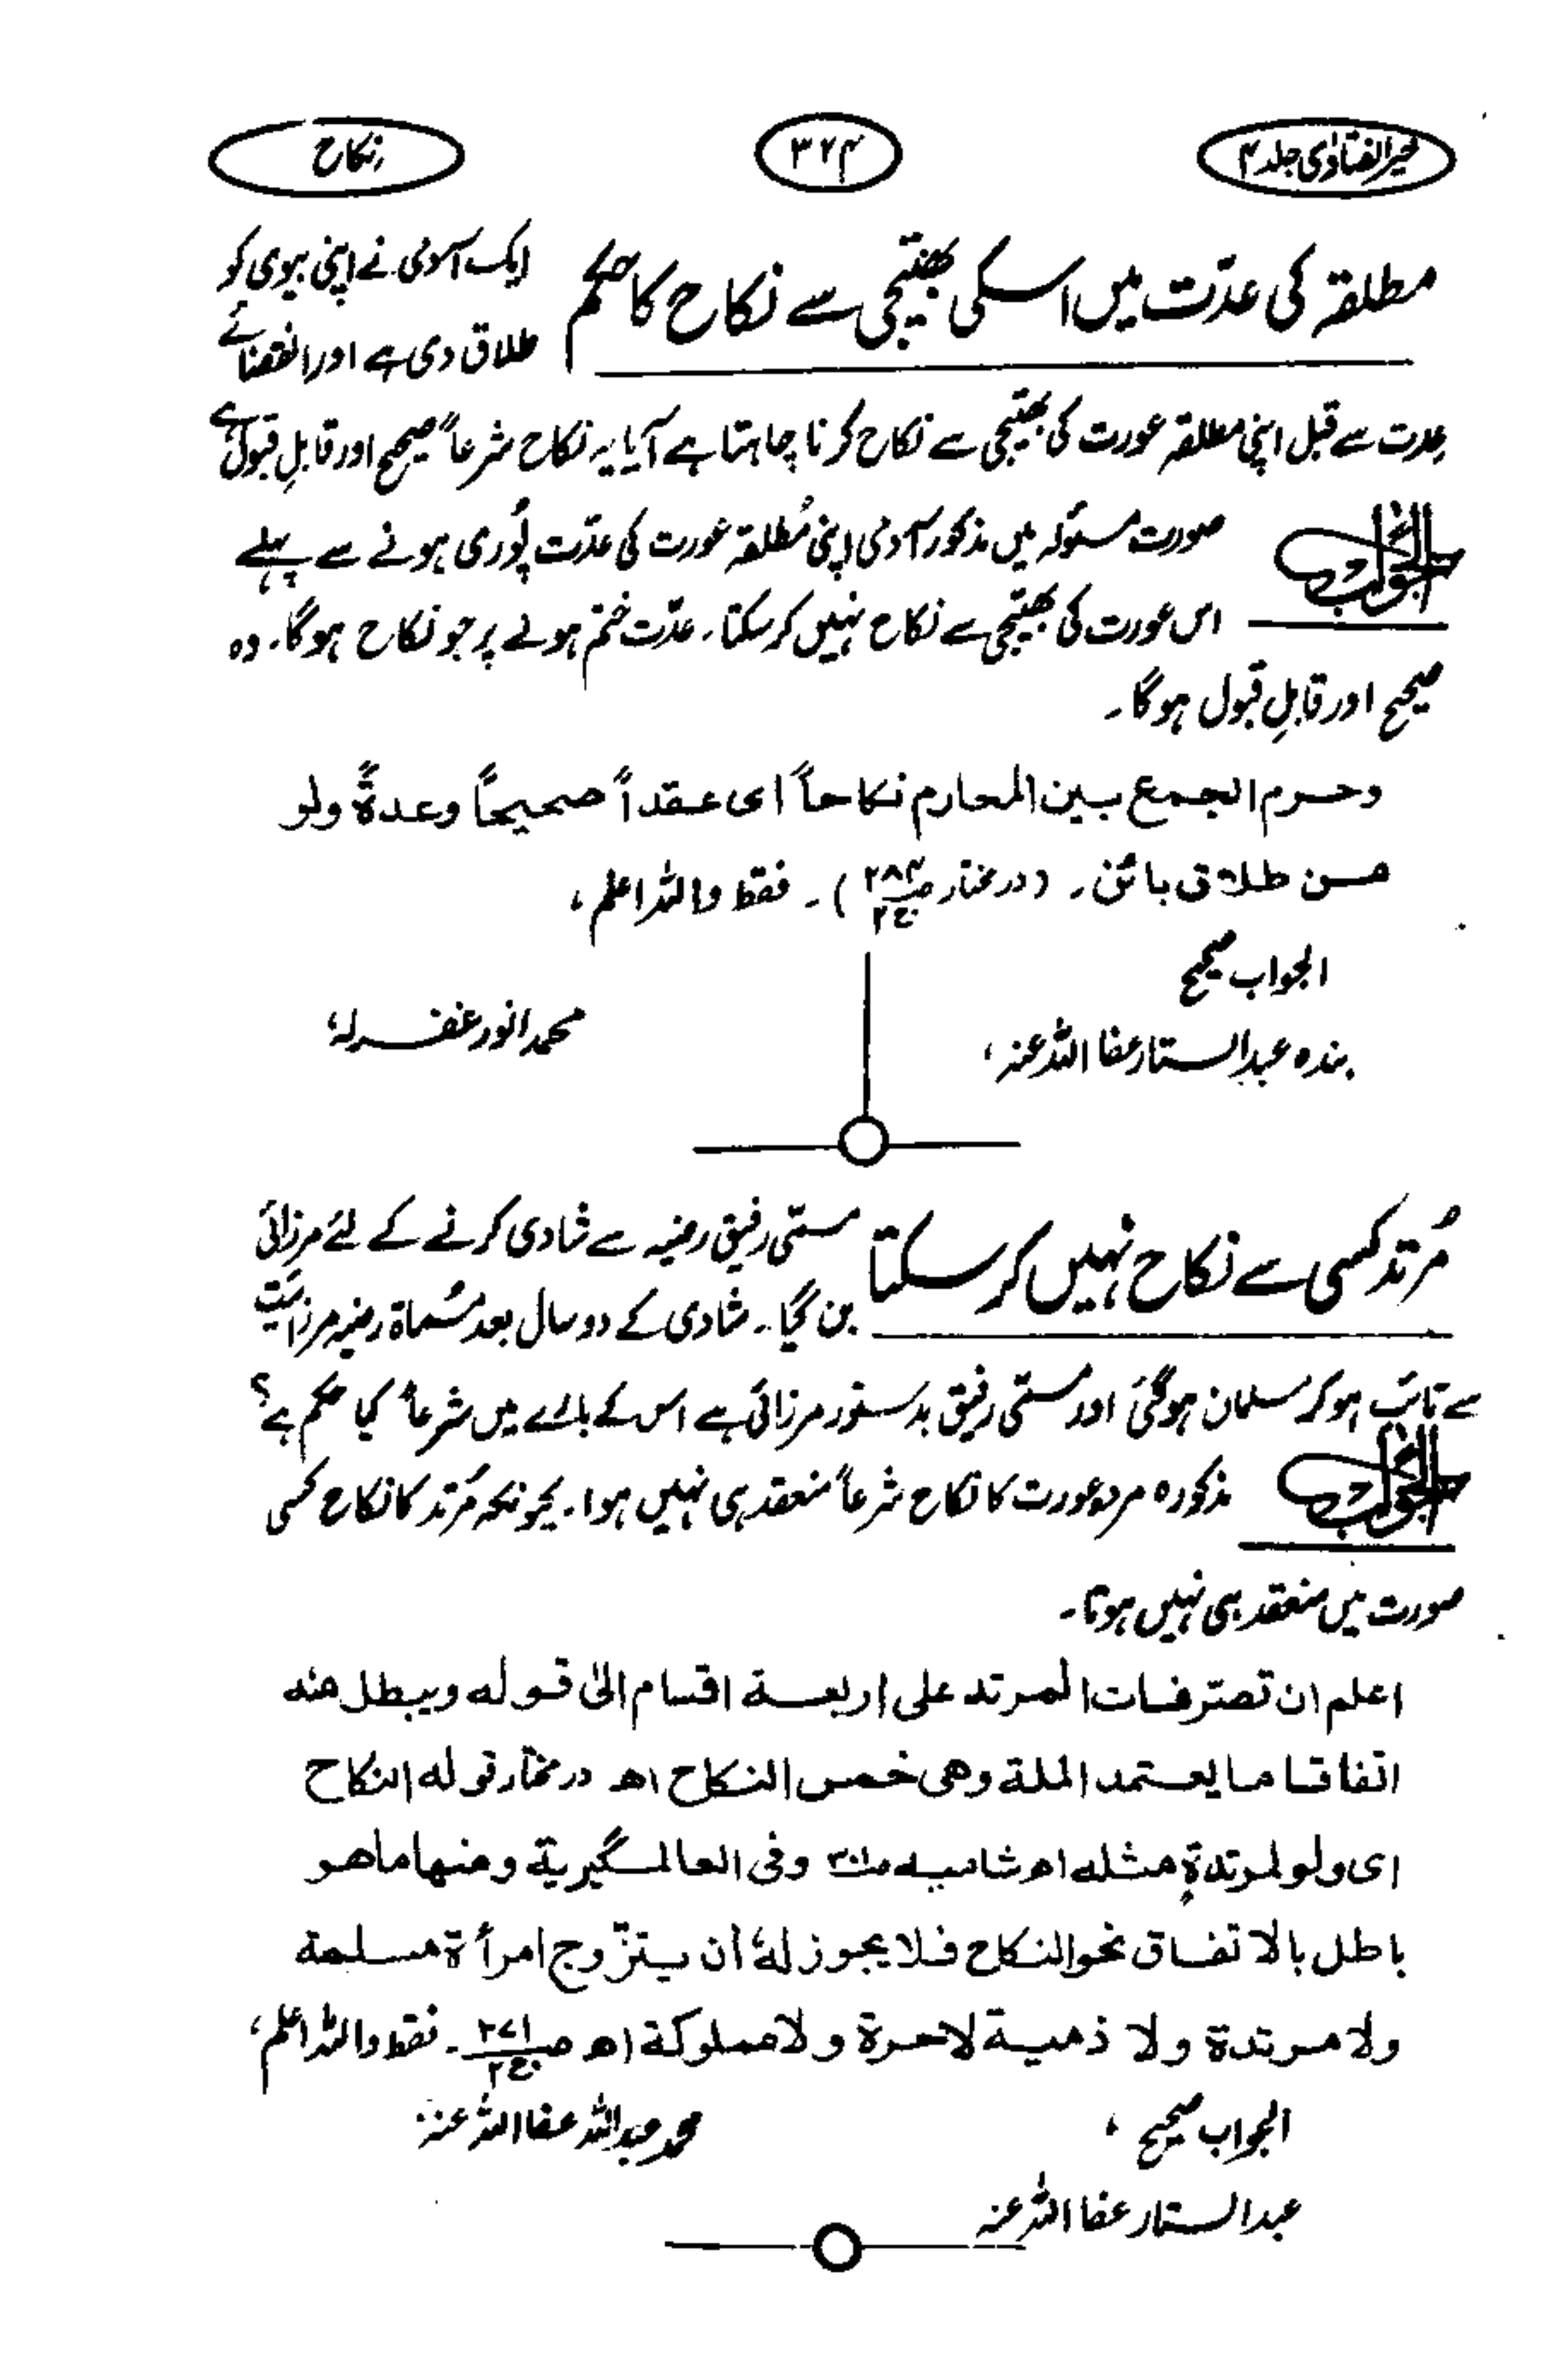 خیر الفتاوٰی جلد ۴
۳۷۴
نکاح
مطلقہ کی عدّت میں اسکی بھتیجی سے نکاح کا حکم
ایک آدمی نے اپنی بیوی کو
طلاق دی ہے اور انقضائے
عِدت سے قبل اپنی مطلقہ عورت کی بھتیجی سے نکاح کرنا چاہتا ہے آیا یہ نکاح شرعاً صحیح اور قابلِ قبول ہے
الجواب
صورت مسئولہ میں مذکور آدمی اپنی مُطلقہ عورت کی عدّت پُوری ہونے سے پہلے
اس عورت کی بھتیجی سے نکاح نہیں کر سکتا۔ عدّت ختم ہونے پر جو نکاح ہوگا۔ وہ
صحیح اور قابلِ قبول ہوگا۔
وحرم الجمع بین المحارم نکاحاً ای عقداً صحیحاً وعدةً ولو
من طلاق بائن۔ (در مختار ص۲۸۴ ج۲)۔ فقط واللہ اعلم،
الجواب صحیح
بندہ عبدالستار عفا اللہ عنہ،
محمد انور غفرلہ،
مُرتد کسی سے نکاح نہیں کر سکتا
مسمّی رفیق رضیہ سے شادی کرنے کے لئے مرزائی
بن گیا۔ شادی کے دو سال بعد مسُماة رضیہ مرزائیت
سے تائب ہو کر مسلمان ہوگئی اور مسمّی رفیق بدستور مرزائی ہے اس کے بارے میں شرعاً کیا حکم ہے؟
الجواب
مذکورہ مرد و عورت کا نکاح شرعاً منعقد ہی نہیں ہوا۔ کیونکہ مُرتد کا نکاح کسی
صورت میں منعقد ہی نہیں ہوتا۔
اعلم ان تصرفات المرتد علی اربعة اقسام الیٰ قوله ویبطل منه
اتفاقا ما یعتمد الملة وهی خمس النکاح اھ در مختار قوله النکاح
ای ولو لمرتدةٍ مثله اھ شامیہ وفی العالمگیریة ومنها ما هو
باطل بالاتفاق نحو النکاح فلا یجوز لهٗ ان یتزّوج امرأة مسلمة
ولا مرتدة ولا ذمیة لا حرة ولا مملوکة اھ ص۲۷۱ ج۲۔ فقط واللہ اعلم،
الجواب صحیح،
محمد عبداللہ عفا اللہ عنہ
عبدالستار عفا اللہ عنہ